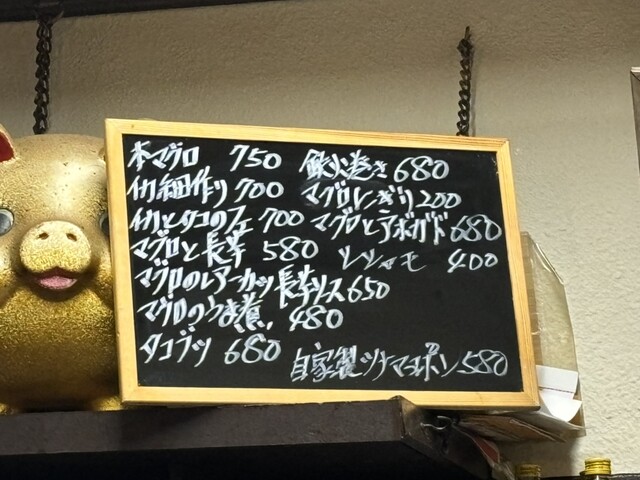 本マグロ 750
イカ細作り 700
イカとタコのフェ 700
マグロと長芋 580
マグロのレアーカツ長芋ソース 650
マグロのうま煮 480
タコブツ 680
鉄火巻き 680
マグロにぎり 200
マグロとアボカド 680
シシャモ 400
自家製ツナマヨポン 580